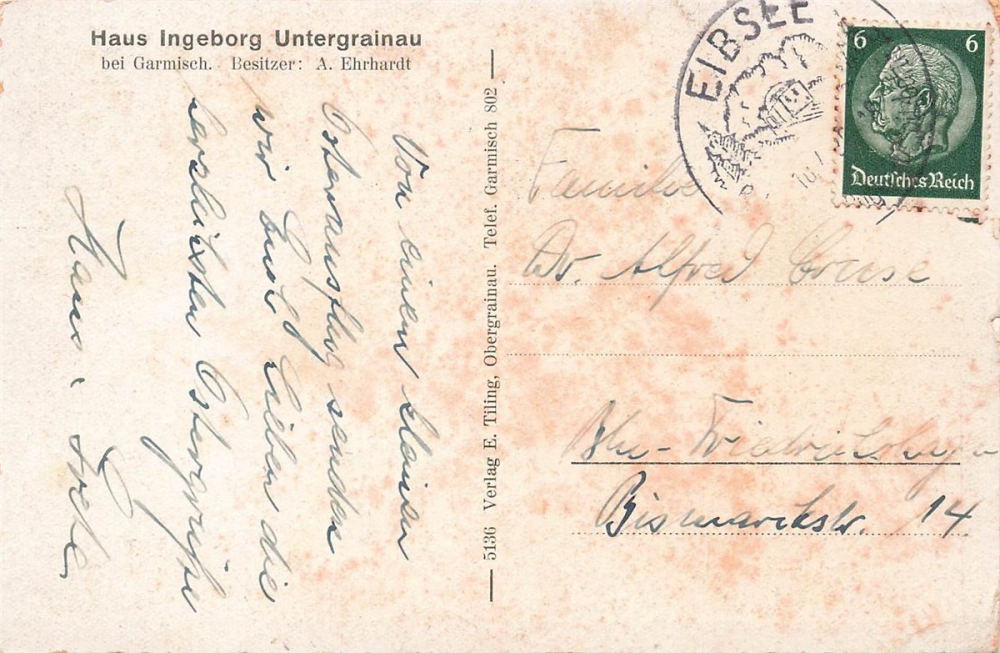 Haus Ingeborg Untergrainau
bei Garmisch. Besitzer: A. Ehrhardt
Von einem kleinen
Osterausflug senden
wir Euch Lieben die
herzlichsten Ostergrüße
Hans u. Grete
5136 Verlag E. Tiling, Obergrainau. Telef. Garmisch 802
EIBSEE
6 6
Deutsches Reich
Familie
Dr. Alfred Cruse
Bln-Friedrichshagen
Bismarckstr. 14